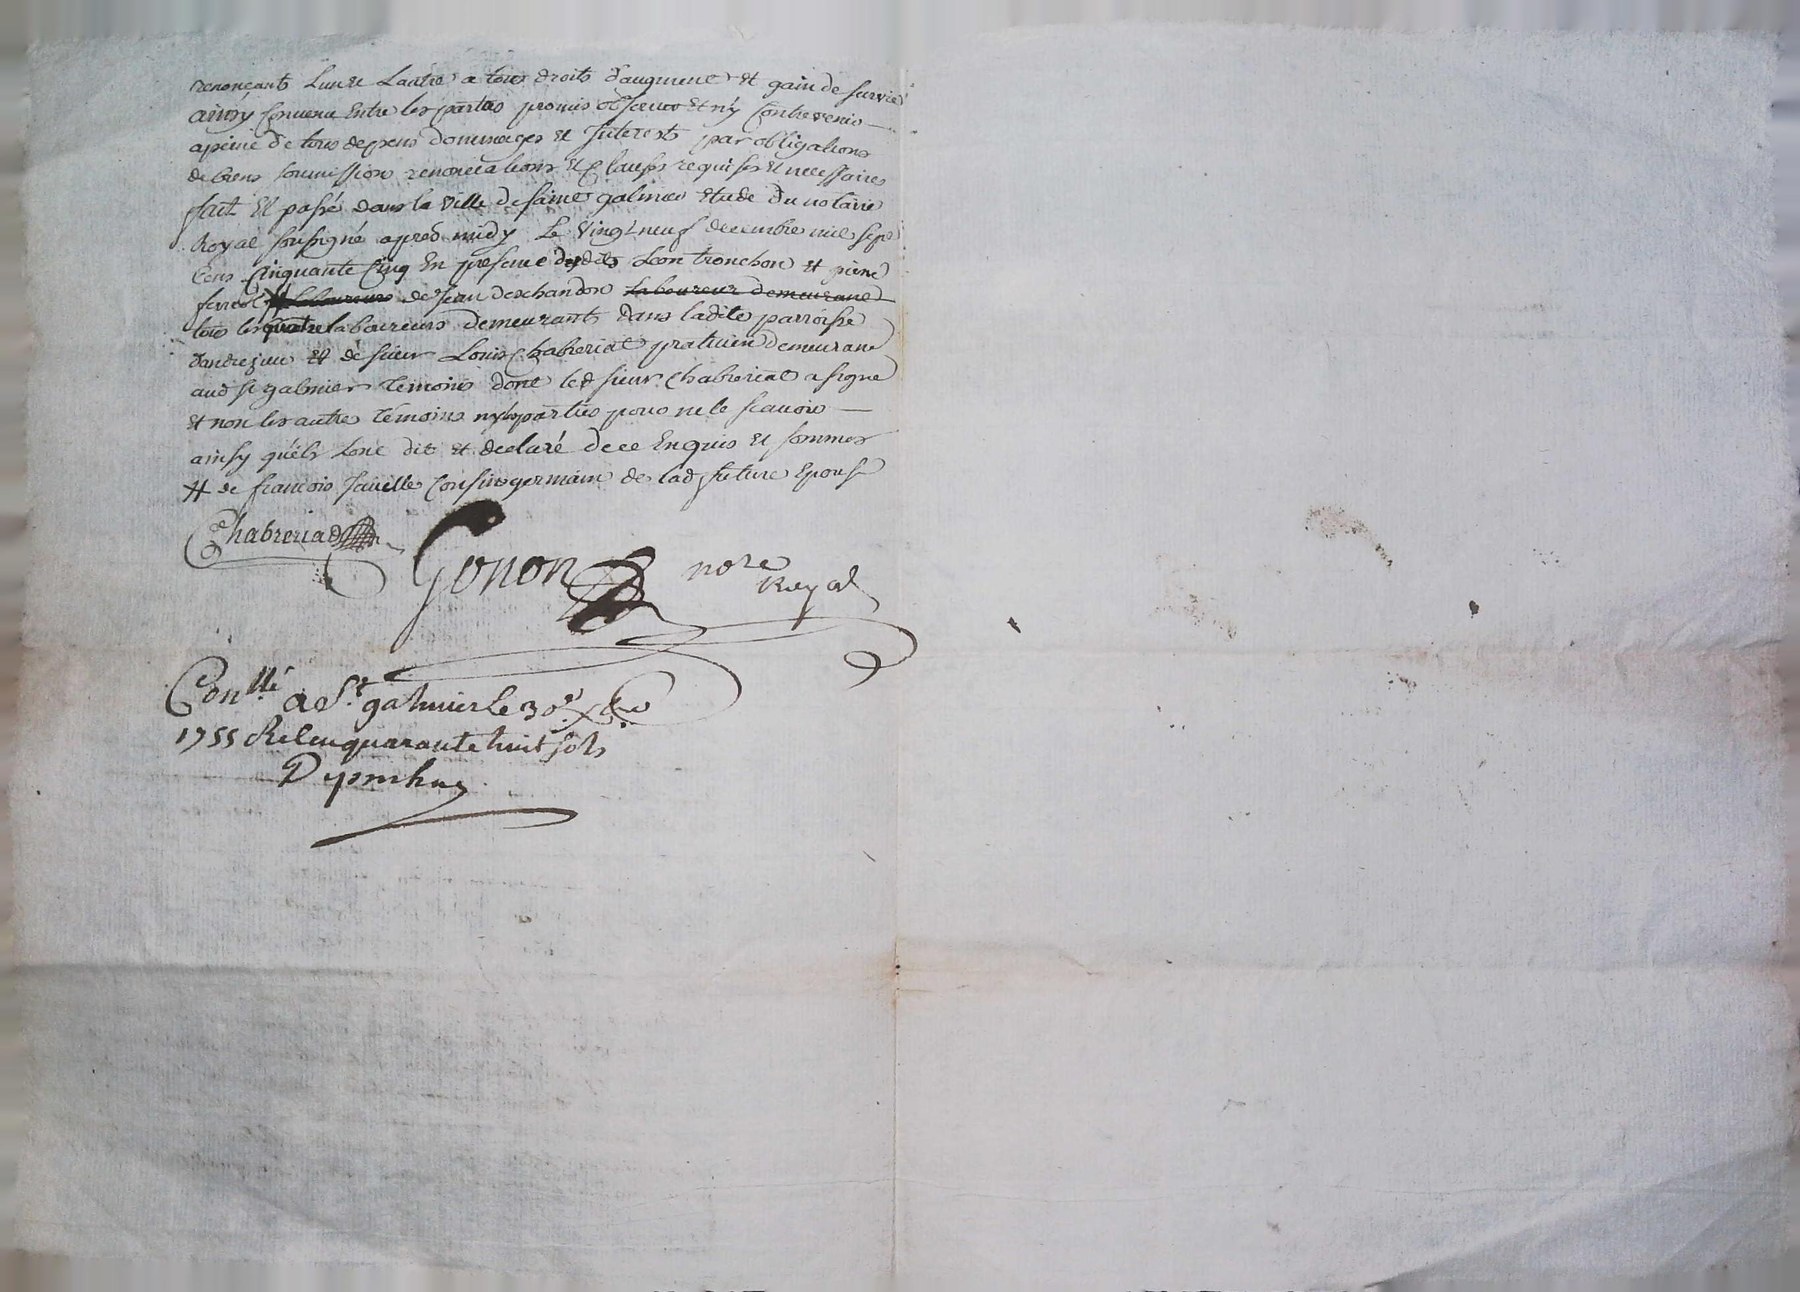 renonçants L'un et L'autre a tous droits d'augment et gain de survie
ainsy convenu Entre les parties promis observer et n'y contrevenir
a peine de tous depens dommages et Interests par obligations
de biens soumission renonciations et clauses requises et necessaires
fait et passé dans la ville de saint galmier etude du notaire
Royal soussigné apres midy Le vingt neuf decembre mil sept
Cens Cinquante Cinq En presence desdits Leon tronchon et pierre
ferreol # laboureur de Jean deschandon laboureur demeurant
tous les quatre laboureurs demeurants dans ladite parroisse
d'andrezieu et de sieur Louis Chabreriat praticien demeurant
aud st galmier temoins dont led sieur Chabreriat a signé
et non les autre temoins ny les parties pour ne le scavoir
ainsy qu'ils l'ont dit et declaré de ce Enquis et sommes
# de francois Cousin germain de lad future Epouse
Chabreriat
Gonon nore
Royal
Conllé a St galmier le 30e xbre
1755 Re quarante huit sols